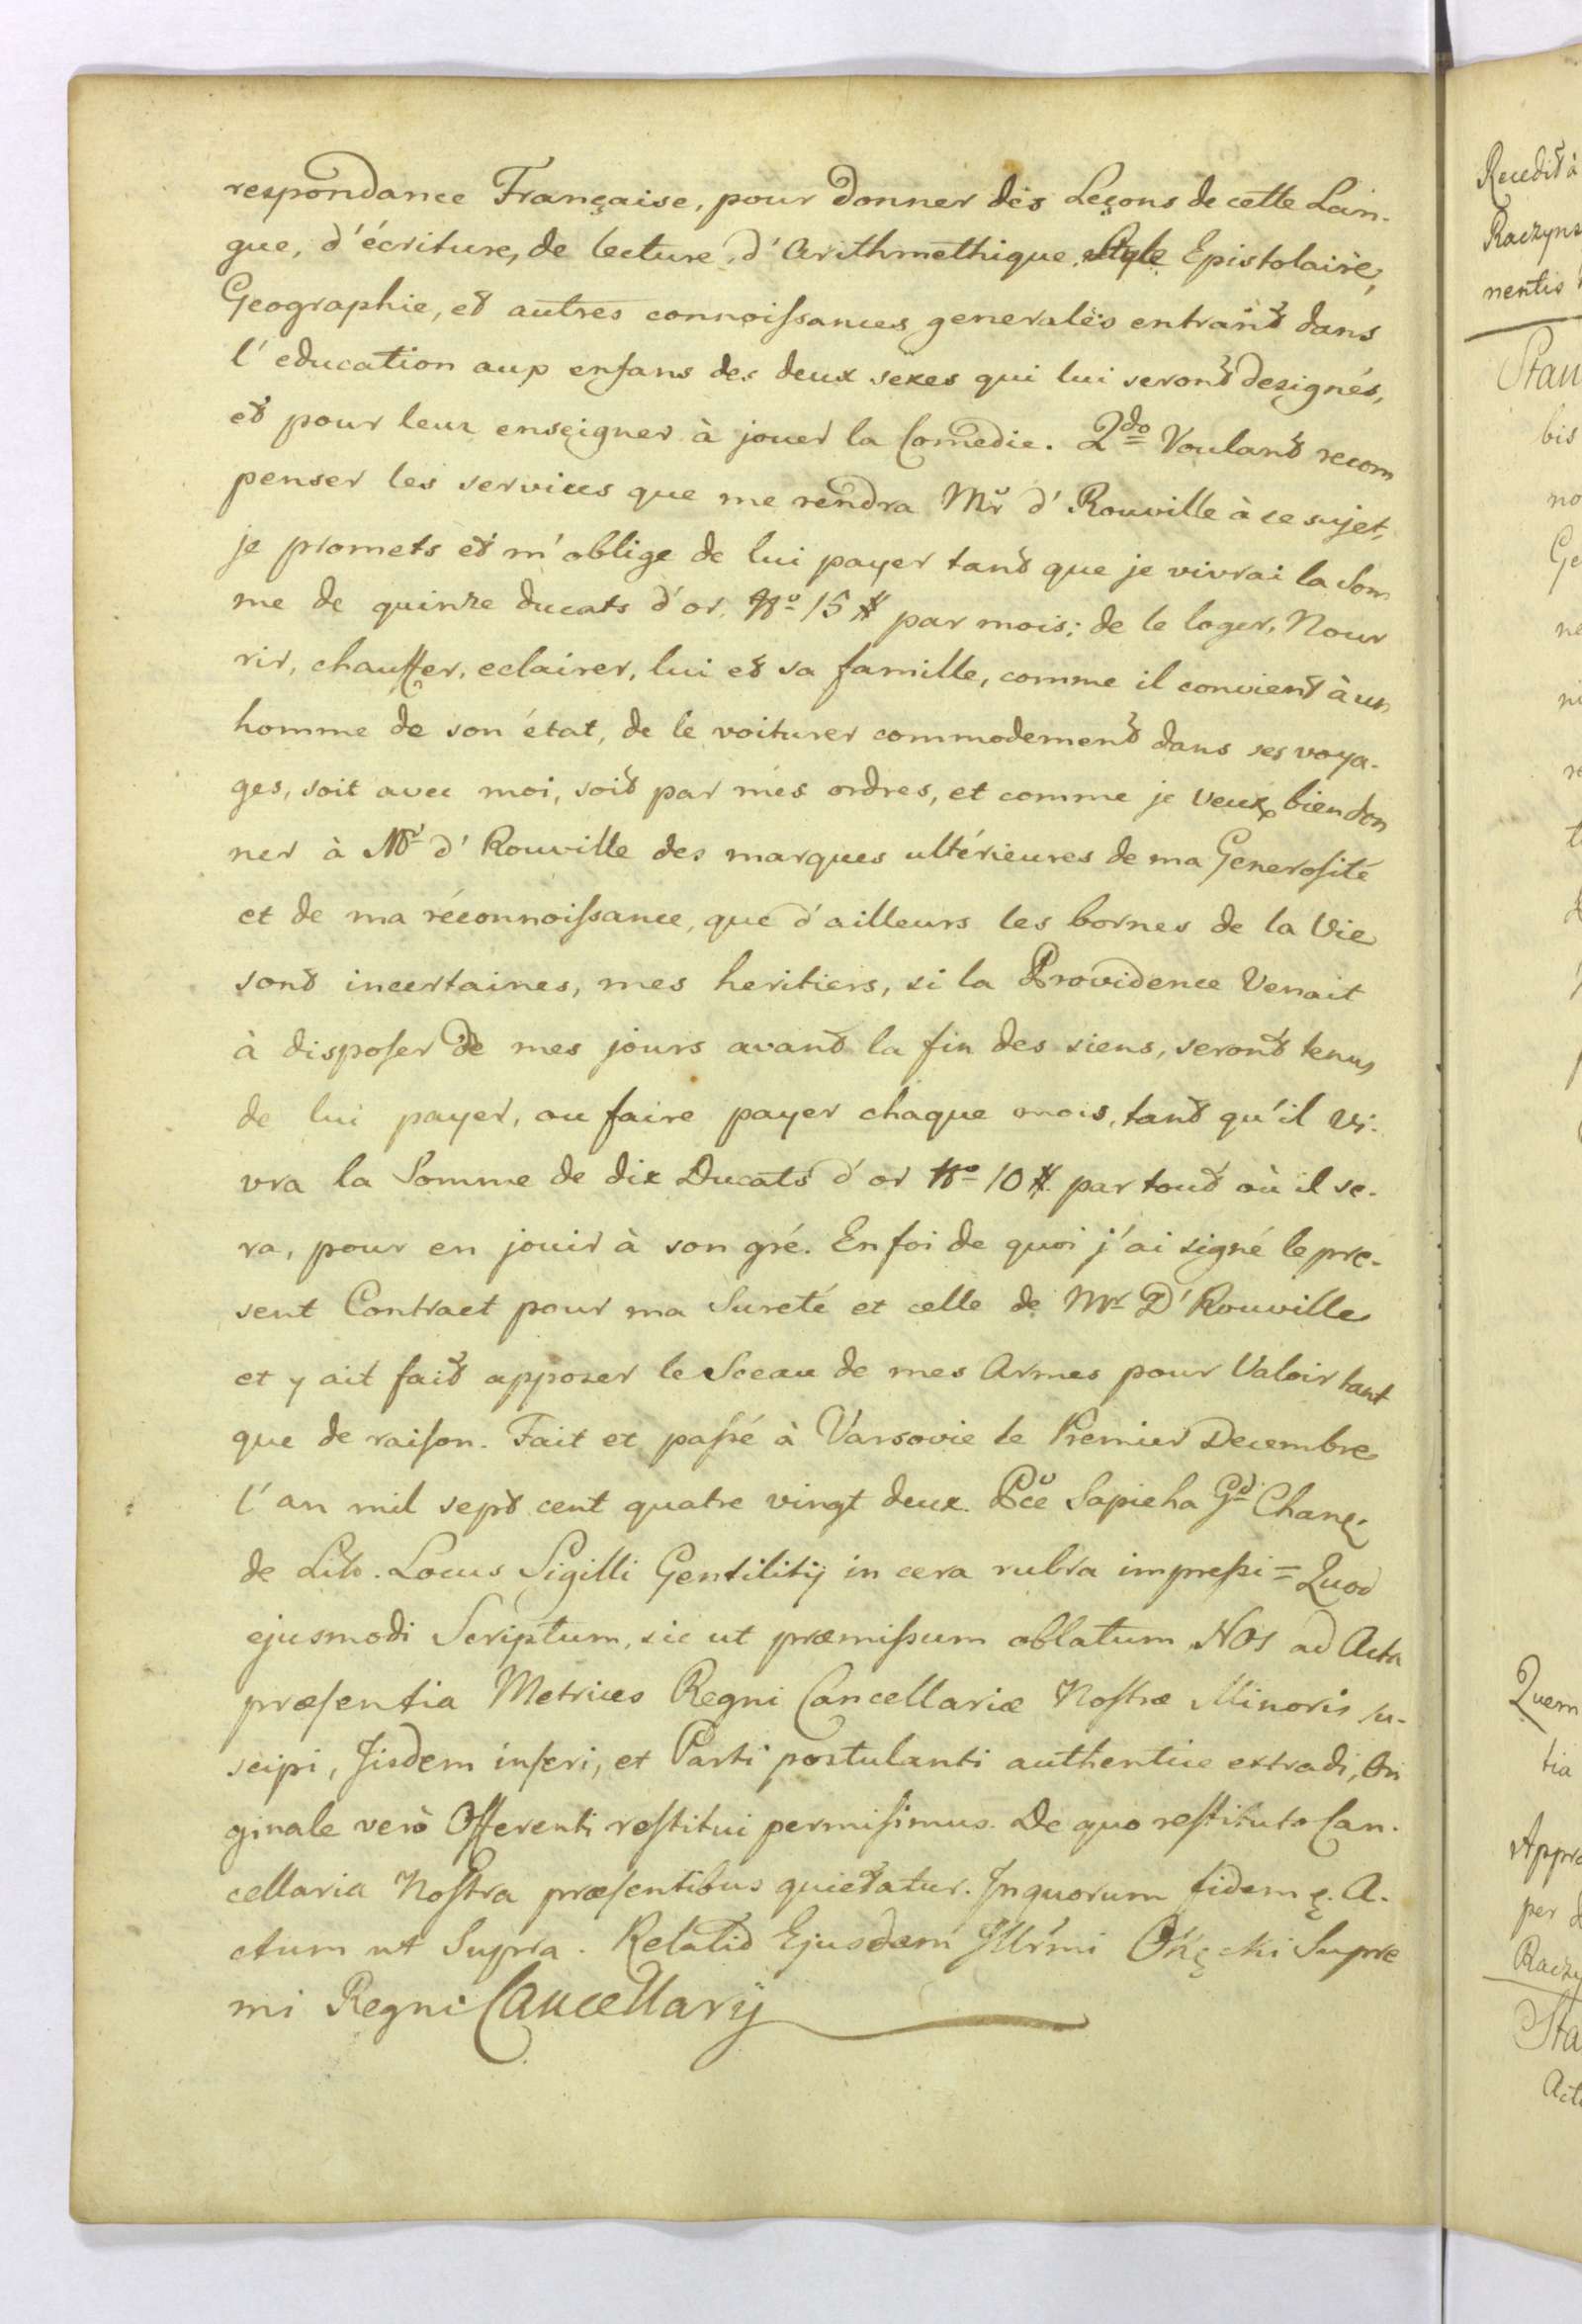 respondance Française, pour donner des Leçons de cette Lan-
gue, d'écriture, de lecture, d'Arithmethique, Style Epistolaire,
Geographie, et autres connoissances generales entrant dans
l'education aux enfans des deux sexes qui lui seront designés,
et pour leur enseigner à jouer la Comedie. 2do Voulant recom
penser les services que me rendra Mr d'Rouville à ce sujet,
je promets et m'oblige de lui payer tant que je vivrai la Som
me de quinze ducats d'or, No 15 # par mois; de le loger, Nour
rir, chauffer, eclairer, lui et sa famille, comme il convient à un
homme de son état, de le voiturer commodement dans ses voya-
ges, soit avec moi, soit par mes ordres, et comme je veux bien don
ner à Mr d'Rouville des marques ultérieures de ma Generosité
et de ma réconnoissance, que d'ailleurs les bornes de la Vie
sont incertaines, mes heritiers, si la Providence Venait
à disposer de mes jours avant la fin des siens, seront tenus
de lui payer, ou faire payer chaque mois, tant qu'il vi-
vra la Somme de dix Ducats d'or No 10 # par tout où il se-
ra, pour en jouir à son gré. En foi de quoi j'ai signé le pre-
sent Contract pour ma Sureté et celle de Mr D'Rouville
et y ait fait apposer le Sceau de mes Armes pour Valoir tant
que de raison. Fait et passé à Varsovie le Premier Decembre
l'an mil sept cent quatre vingt deux. Pce Sapieha Gd Chanc:
de Lit. Locus Sigilli Gentilitij in cera rubra impressi = Quod
ejusmodi Scriptum, sic ut præmissum oblatum Nos ad Acta
præsentia Metrices Regni Cancellariæ Nostræ Minoris su-
scipi, Jisdem inseri, et Parti postulanti authentice extradi, Ori
ginale verò Offerenti restitui permisimus. De quo restituto Can-
cellaria Nostra præsentibus quietatur. In quorum fidem ę. A-
ctum ut Supra. Relatio Ejusdem Illrmi Okęcki Supre
mi Regni Cancellarij
Recedit à
Raczyns
nentis
Stan
bis
no
Ge
ne
ni
re
Quem
tia
Appro
per d
Raczy
Sta
Acto